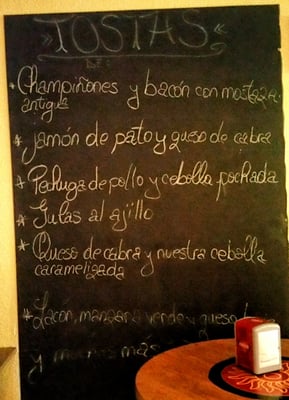 TOSTAS
DE:
* Champiñones y bacón con mostaza
antigua
* jamón de pato y queso de cabra
* Pechuga de pollo y cebolla pochada
* Gulas al ajillo
* Queso de cabra y nuestra cebolla
caramelizada
* Lacón, manzana verde y queso
y muchas más